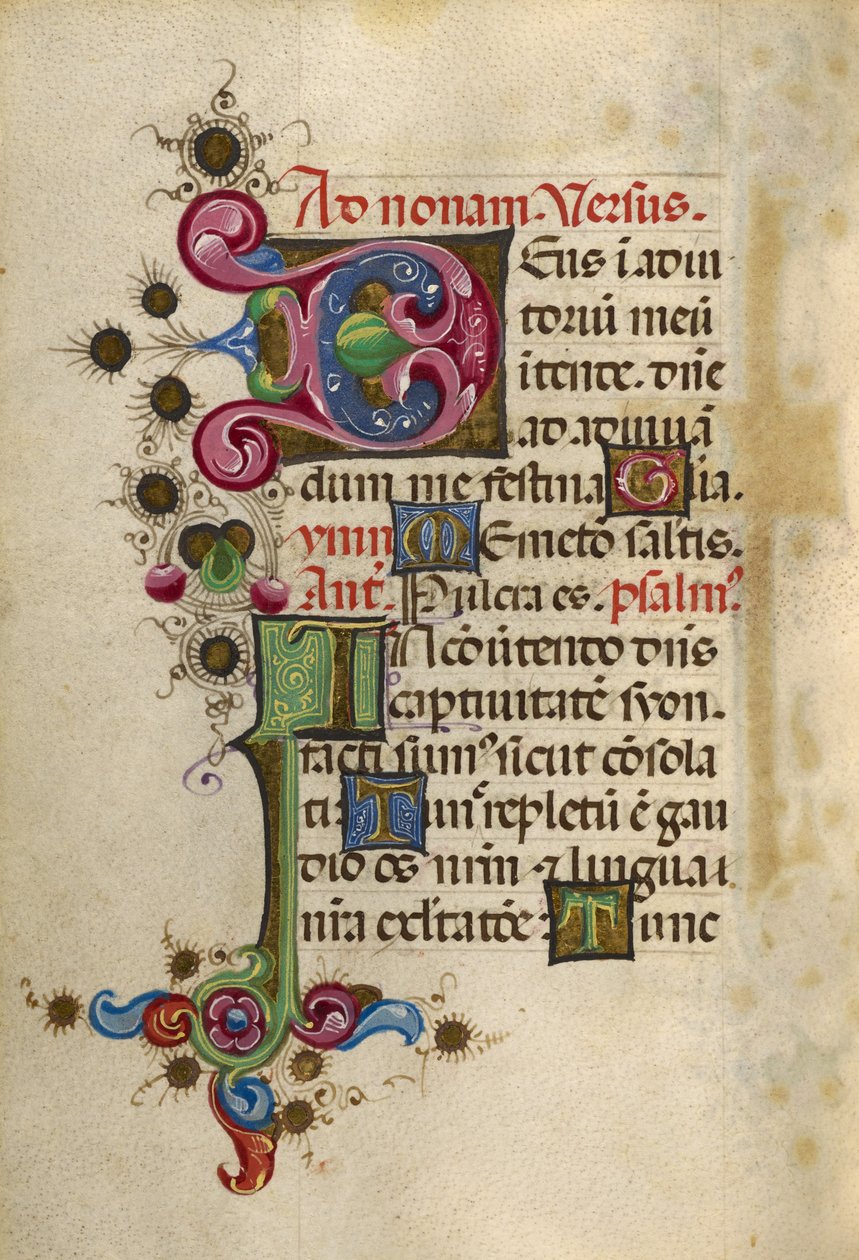 Ad nonam. Versus.
DEus ī adiu
toriū meū
ītende. dñe
ad adiuuā
dum me festina Gl'ia.
ymn MEmētō sal'tis.
Ant'. Pulcra es. psalmꝰ
IN cōūtendo dn̄s
captiuitatē syon.
facti sumꝰ sicut cōsola
ti. Tunc repletū ē gau
dio os nr̄m ⁊ lingua
nr̄a exl'tatōe: Tunc